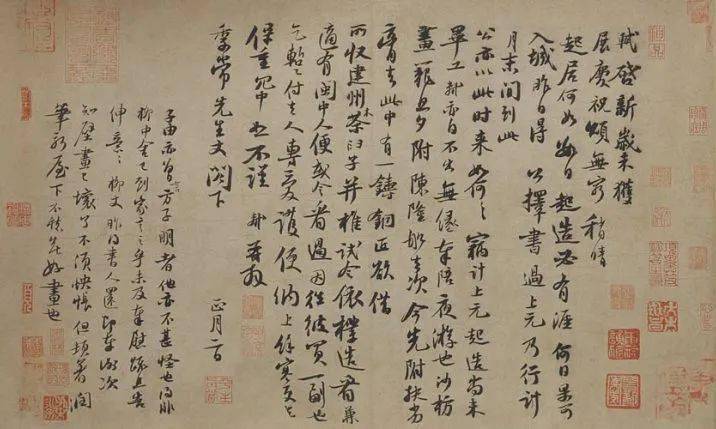 軾啓新歲未獲
展慶祝頌無窮稍晴
起居何如數日起造必有涯何日果可
入城昨日得公擇書過上元乃行計
月末間到此
公亦以此時来如何〻竊計上元起造尚未
畢工軾亦自不出無緣奉陪夜游也沙枋
畫籠旦夕附陳隆舩去次今先附扶劣
膏去此中有一鑄銅匠欲借
所收建州木茶臼子并椎試令依樣造看兼
適有閩中人便或令看過因往彼買一副也
乞暫〻付去人專愛護便納上餘寒更乞
保重冗中恕不謹軾再拜
季常先生丈閤下
正月二日
子由亦曾言方子明者他亦不甚怪也得非
柳中舍已到家言之乎未及奉慰疏且告
伸意〻柳丈昨得書人還即奉謝次
知壁畫已壞了不須怏悵但頓著潤
筆新屋下不愁無好畫也